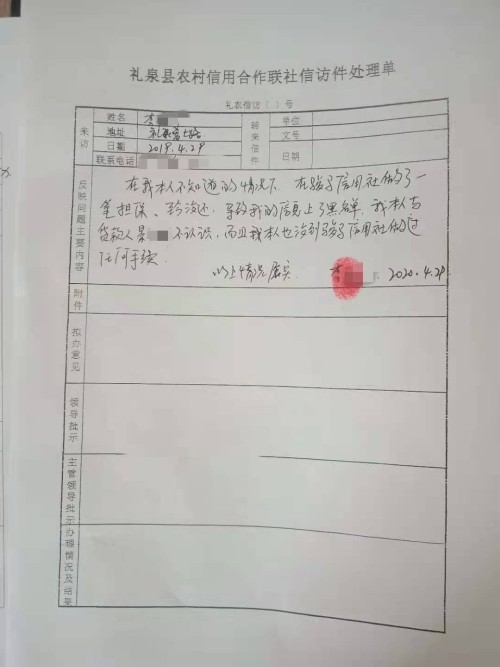 礼泉县农村信用合作联社信访件处理单
礼农信访〔 〕号
来访
姓名 李
地址
日期 2019.4.29
联系电话
转来信件
单位
文号
日期
反映问题主要内容
在我本人不知道的情况下，在骏马信用社做了一
笔担保、至今没还，导致我的信息上了黑名单，我本与
贷款人 不认识，而且我本人也没到骏马信用社做过
任何手续
以上情况属实 李 2020.4.29
附件
拟办意见
领导批示
主管领导批示
办理情况及结果